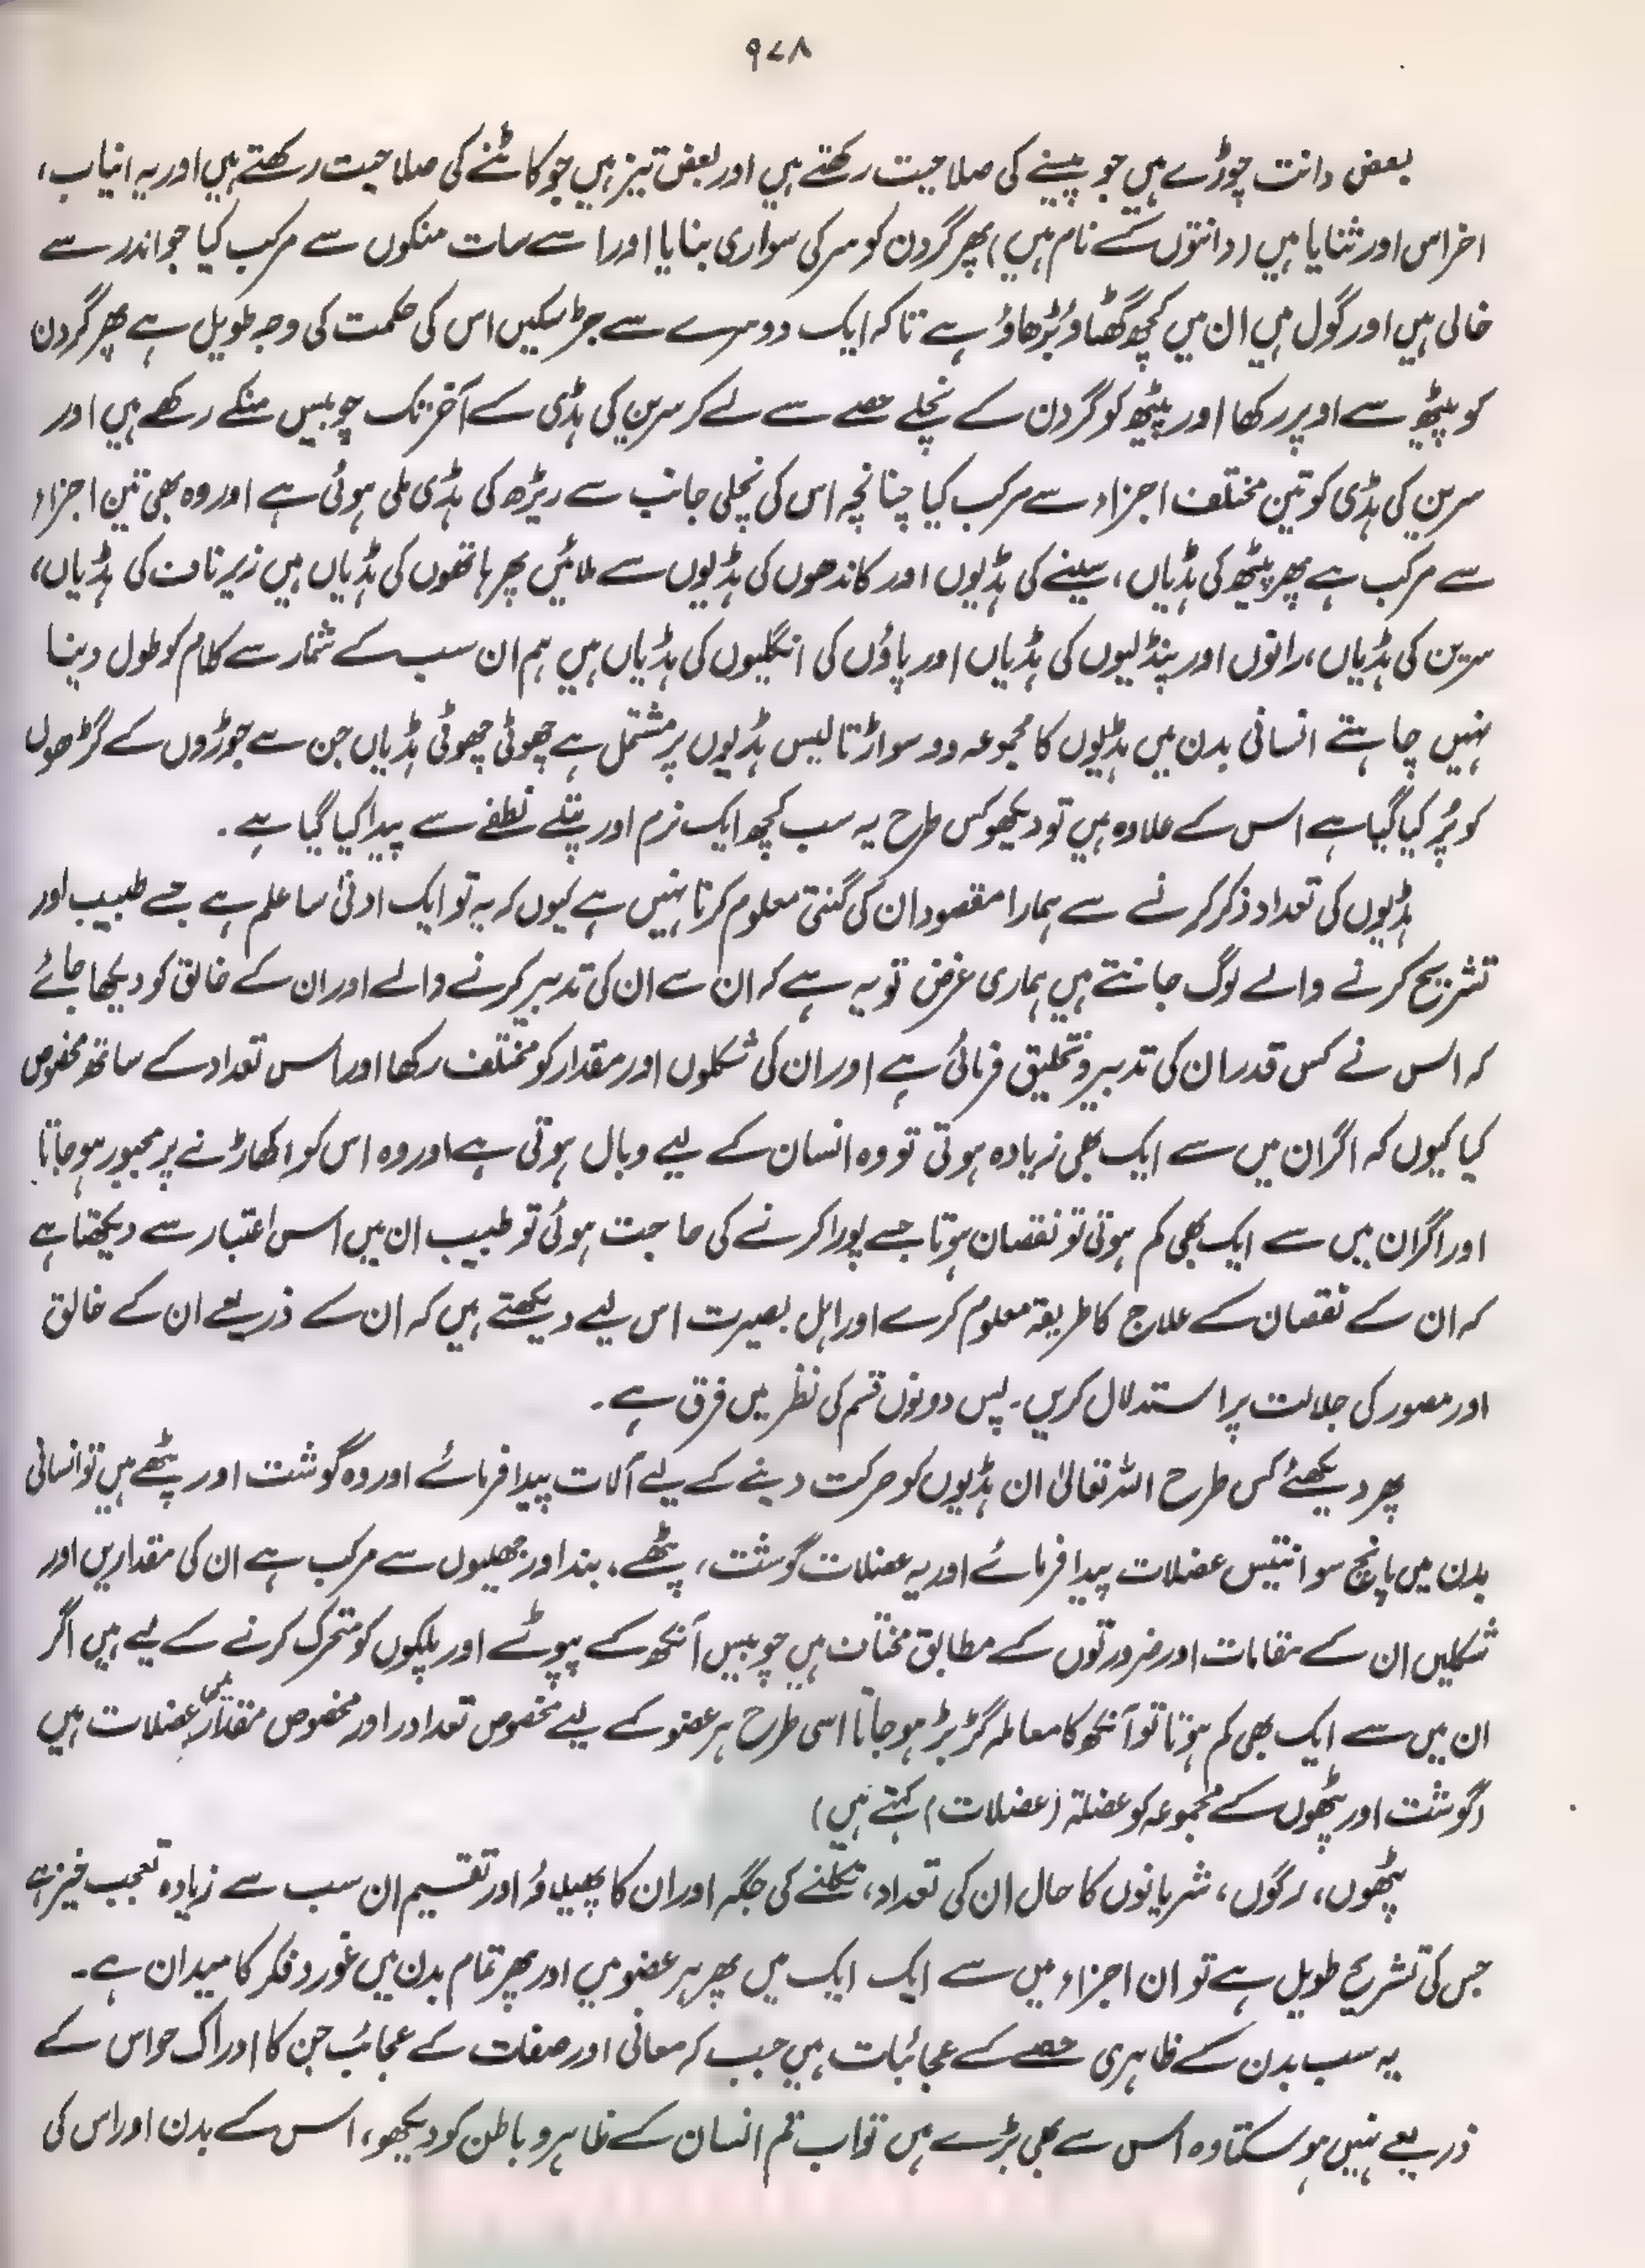 ۹۷۸
بعض دانت چوڑے ہیں جو پیسنے کی صلاحیت رکھتے ہیں اور بعض تیز ہیں جو کاٹنے کی صلاحیت رکھتے ہیں اور یہ انیاب،
اخراس اور ثنایا ہیں (دانتوں کے نام ہیں) پھر گردن کو سر کی سواری بنایا اور اسے سات منکوں سے مرکب کیا جو اندر سے
خالی ہیں اور گول ہیں ان میں کچھ گھٹاؤ بڑھاؤ ہے تاکہ ایک دوسرے سے جڑ سکیں اس کی حکمت کی وجہ طویل ہے پھر گردن
کو پیٹھ سے اوپر رکھا اور پیٹھ کو گردن کے نچلے حصے سے لے کر سرین کی ہڈی کے آخر تک چوبیس منکے رکھے ہیں اور
سرین کی ہڈی کو تین مختلف اجزاء سے مرکب کیا چنانچہ اس کی نچلی جانب سے ریڑھ کی ہڈی ملی ہوئی ہے اور وہ بھی تین اجزاء
سے مرکب ہے پھر پیٹھ کی ہڈیاں، سینے کی ہڈیوں اور کاندھوں کی ہڈیوں سے ملائیں پھر ہاتھوں کی ہڈیاں ہیں زیر ناف کی ہڈیاں،
سرین کی ہڈیاں، رانوں اور پنڈلیوں کی ہڈیاں اور پاؤں کی انگلیوں کی ہڈیاں ہیں ہم ان سب کے شمار سے کلام کو طول دینا
نہیں چاہتے انسانی بدن میں ہڈیوں کا مجموعہ دو سو اڑتالیس ہڈیوں پر مشتمل ہے چھوٹی چھوٹی ہڈیاں جن سے جوڑوں کے گڑھوں
کو پُر کیا گیا ہے اس کے علاوہ ہیں تو دیکھو کس طرح یہ سب کچھ ایک نرم اور پتلے نطفے سے پیدا کیا گیا ہے۔
ہڈیوں کی تعداد ذکر کرنے سے ہمارا مقصود ان کی گنتی معلوم کرنا نہیں ہے کیوں کہ یہ تو ایک ادنیٰ سا علم ہے جسے طبیب اور
تشریح کرنے والے لوگ جانتے ہیں ہماری غرض تو یہ ہے کہ ان سے ان کی تدبیر کرنے والے اور ان کے خالق کو دیکھا جائے
کہ اس نے کس قدر ان کی تدبیر و تخلیق فرمائی ہے اور ان کی شکلوں اور مقدار کو مختلف رکھا اور اس تعداد کے ساتھ مخصوص
کیا کیوں کہ اگر ان میں سے ایک بھی زیادہ ہوتی تو وہ انسان کے لیے وبال ہوتی ہے اور وہ اس کو اکھاڑنے پر مجبور ہو جاتا
اور اگر ان میں سے ایک بھی کم ہوتی تو نقصان ہوتا جسے پورا کرنے کی حاجت ہوئی تو طبیب ان میں اس اعتبار سے دیکھتا ہے
کہ ان کے نقصان کے علاج کا طریقہ معلوم کرے اور اہل بصیرت اس لیے دیکھتے ہیں کہ ان کے ذریعے ان کے خالق
اور مصور کی جلالت پر استدلال کریں۔ پس دونوں قسم کی نظر میں فرق ہے۔
پھر دیکھئے کس طرح اللہ تعالیٰ ان ہڈیوں کو حرکت دینے کے لیے آلات پیدا فرمائے اور وہ گوشت اور پٹھے ہیں تو انسانی
بدن میں پانچ سو انتیس عضلات پیدا فرمائے اور یہ عضلات گوشت، پٹھے، بند اور جھلیوں سے مرکب ہے ان کی مقداریں اور
شکلیں ان کے مقامات اور ضرورتوں کے مطابق مختلف ہیں چوبیس آنکھ کے پپوٹے اور پلکوں کو متحرک کرنے کے لیے ہیں اگر
ان میں سے ایک بھی کم ہوتا تو آنکھ کا معاملہ گڑبڑ ہو جاتا اسی طرح ہر عضو کے لیے مخصوص تعداد اور مخصوص مقدار میں عضلات ہیں
(گوشت اور پٹھوں کے مجموعہ کو عضلۃ (عضلات) کہتے ہیں)
پٹھوں، رگوں، شریانوں کا حال ان کی تعداد، نکلنے کی جگہ اور ان کا پھیلاؤ اور تقسیم ان سب سے زیادہ تعجب خیز ہے
جس کی تشریح طویل ہے تو ان اجزاء میں سے ایک ایک میں پھر ہر عضو میں اور پھر تمام بدن میں غور و فکر کا میدان ہے۔
یہ سب بدن کے ظاہری حصے کے عجائبات ہیں جب کہ معانی اور صفات کے عجائب جن کا ادراک حواس کے
ذریعے نہیں ہو سکتا وہ اس سے بھی بڑے ہیں تو اب تم انسان کے ظاہر و باطن کو دیکھو، اس کے بدن اور اس کی